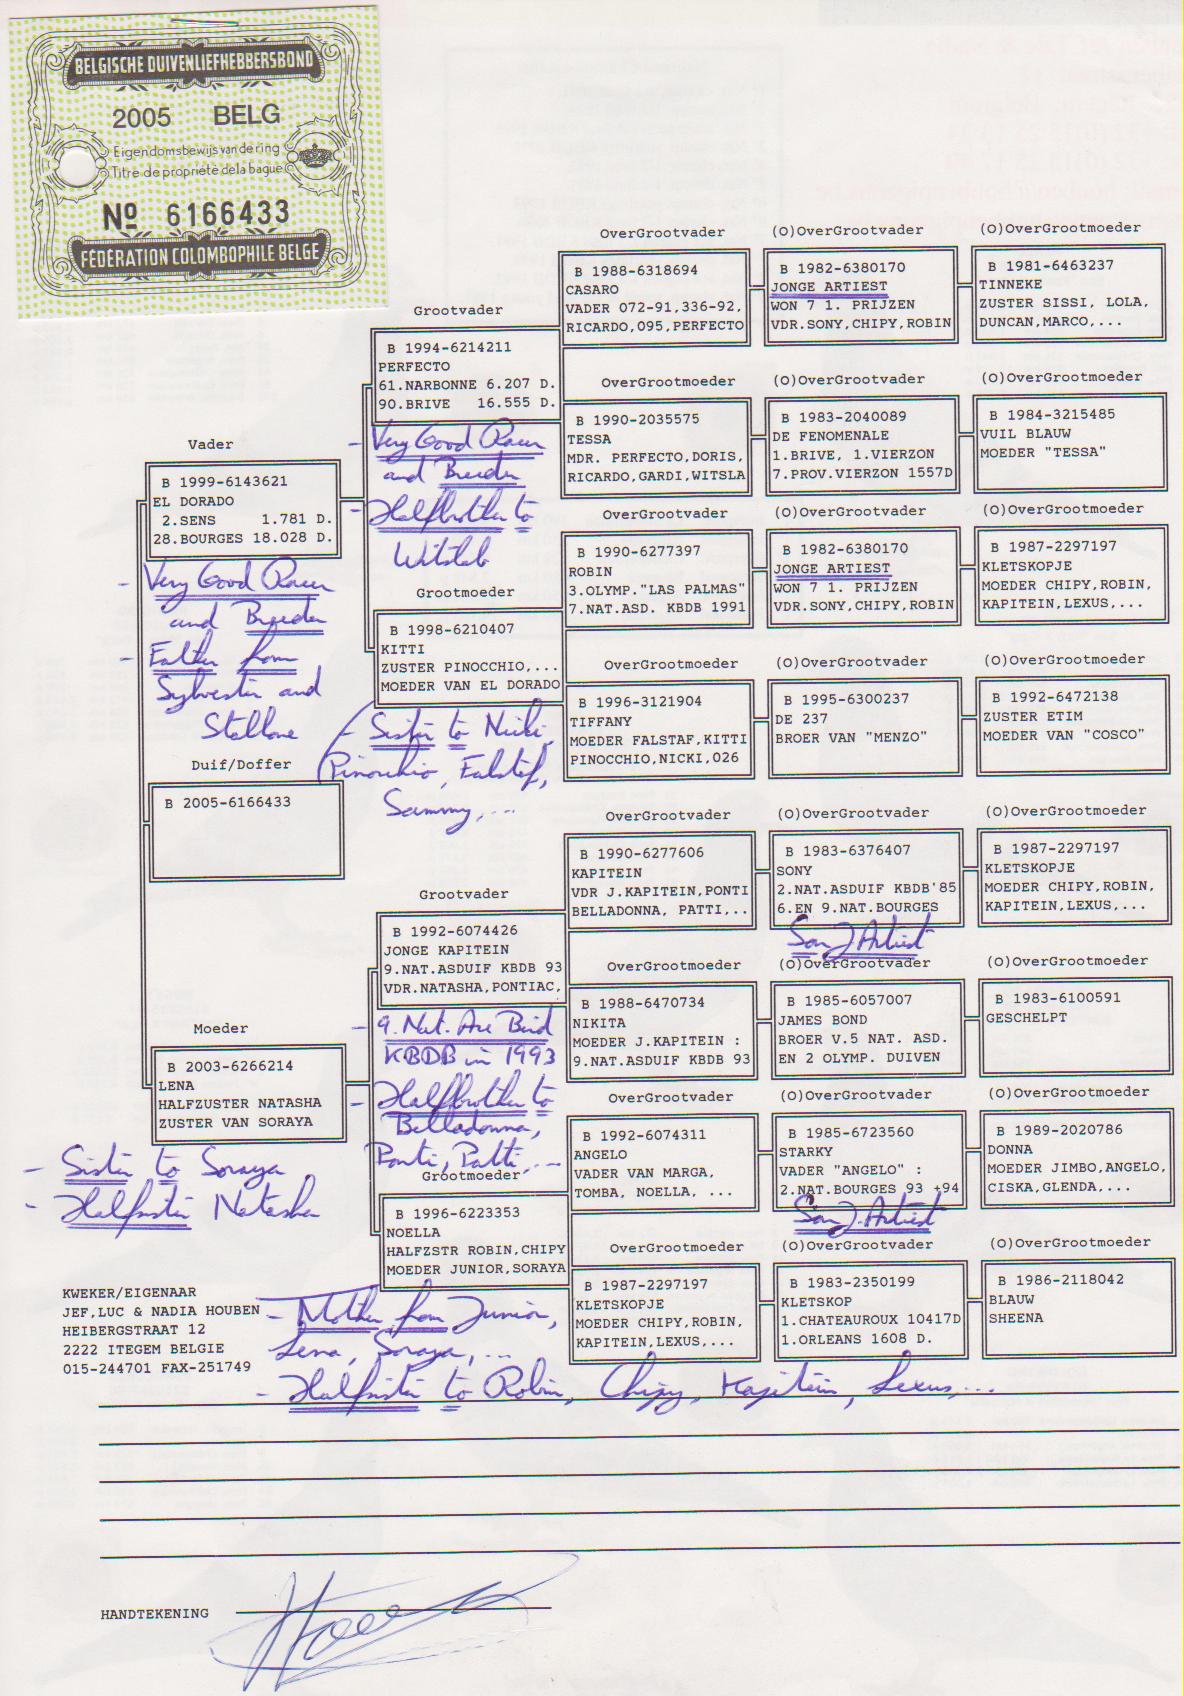 BELGISCHE DUIVENLIEFHEBBERSBOND
2005 BELG
Eigendomsbewijs van de ring
Titre de propriété de la bague
Nº 6166433
FÉDÉRATION COLOMBOPHILE BELGE
Vader
B 1999-6143621
EL DORADO
2.SENS 1.781 D.
28.BOURGES 18.028 D.
- Very Good Racer
and Breeder
- Father from
Sylvester and
Stallone
Duif/Doffer
B 2005-6166433
Moeder
B 2003-6266214
LENA
HALFZUSTER NATASHA
ZUSTER VAN SORAYA
- Sister to Soraya
- Halfsister Natasha
Grootvader
B 1994-6214211
PERFECTO
61.NARBONNE 6.207 D.
90.BRIVE 16.555 D.
- Very Good Racer
and Breeder
- Halfbrother to
Witslab
Grootmoeder
B 1998-6210407
KITTI
ZUSTER PINOCCHIO,...
MOEDER VAN EL DORADO
- Sister to Nicki,
Pinocchio, Falstaf,
Sammy,...
Grootvader
B 1992-6074426
JONGE KAPITEIN
9.NAT.ASDUIF KBDB 93
VDR.NATASHA,PONTIAC,
- 9. Nat. Ace Bird
KBDB in 1993
- Halfbrother to
Belladonna,
Ponti, Patti,...
Grootmoeder
B 1996-6223353
NOELLA
HALFZSTR ROBIN,CHIPY
MOEDER JUNIOR,SORAYA
- Mother from Junior,
Lena, Soraya,...
- Halfsister to Robin, Chipy, Kapitein, Lexus,...
OverGrootvader
B 1988-6318694
CASARO
VADER 072-91,336-92,
RICARDO,095,PERFECTO
OverGrootmoeder
B 1990-2035575
TESSA
MDR. PERFECTO,DORIS,
RICARDO,GARDI,WITSLA
OverGrootvader
B 1990-6277397
ROBIN
3.OLYMP."LAS PALMAS"
7.NAT.ASD. KBDB 1991
OverGrootmoeder
B 1996-3121904
TIFFANY
MOEDER FALSTAF,KITTI
PINOCCHIO,NICKI,026
OverGrootvader
B 1990-6277606
KAPITEIN
VDR J.KAPITEIN,PONTI
BELLADONNA, PATTI,..
OverGrootmoeder
B 1988-6470734
NIKITA
MOEDER J.KAPITEIN :
9.NAT.ASDUIF KBDB 93
OverGrootvader
B 1992-6074311
ANGELO
VADER VAN MARGA,
TOMBA, NOELLA, ...
OverGrootmoeder
B 1987-2297197
KLETSKOPJE
MOEDER CHIPY,ROBIN,
KAPITEIN,LEXUS,...
(O)OverGrootvader
B 1982-6380170
JONGE ARTIEST
WON 7 1. PRIJZEN
VDR.SONY,CHIPY,ROBIN
(O)OverGrootvader
B 1983-2040089
DE FENOMENALE
1.BRIVE, 1.VIERZON
7.PROV.VIERZON 1557D
(O)OverGrootvader
B 1982-6380170
JONGE ARTIEST
WON 7 1. PRIJZEN
VDR.SONY,CHIPY,ROBIN
(O)OverGrootvader
B 1995-6300237
DE 237
BROER VAN "MENZO"
(O)OverGrootvader
B 1983-6376407
SONY
2.NAT.ASDUIF KBDB'85
6.EN 9.NAT.BOURGES
Son J. Artiest
(O)OverGrootvader
B 1985-6057007
JAMES BOND
BROER V.5 NAT. ASD.
EN 2 OLYMP. DUIVEN
(O)OverGrootvader
B 1985-6723560
STARKY
VADER "ANGELO" :
2.NAT.BOURGES 93 +94
Son J. Artiest
(O)OverGrootvader
B 1983-2350199
KLETSKOP
1.CHATEAUROUX 10417D
1.ORLEANS 1608 D.
(O)OverGrootmoeder
B 1981-6463237
TINNEKE
ZUSTER SISSI, LOLA,
DUNCAN,MARCO,...
(O)OverGrootmoeder
B 1984-3215485
VUIL BLAUW
MOEDER "TESSA"
(O)OverGrootmoeder
B 1987-2297197
KLETSKOPJE
MOEDER CHIPY,ROBIN,
KAPITEIN,LEXUS,...
(O)OverGrootmoeder
B 1992-6472138
ZUSTER ETIM
MOEDER VAN "COSCO"
(O)OverGrootmoeder
B 1987-2297197
KLETSKOPJE
MOEDER CHIPY,ROBIN,
KAPITEIN,LEXUS,...
(O)OverGrootmoeder
B 1983-6100591
GESCHELPT
(O)OverGrootmoeder
B 1989-2020786
DONNA
MOEDER JIMBO,ANGELO,
CISKA,GLENDA,...
(O)OverGrootmoeder
B 1986-2118042
BLAUW
SHEENA
KWEKER/EIGENAAR
JEF,LUC & NADIA HOUBEN
HEIBERGSTRAAT 12
2222 ITEGEM BELGIE
015-244701 FAX-251749
HANDTEKENING